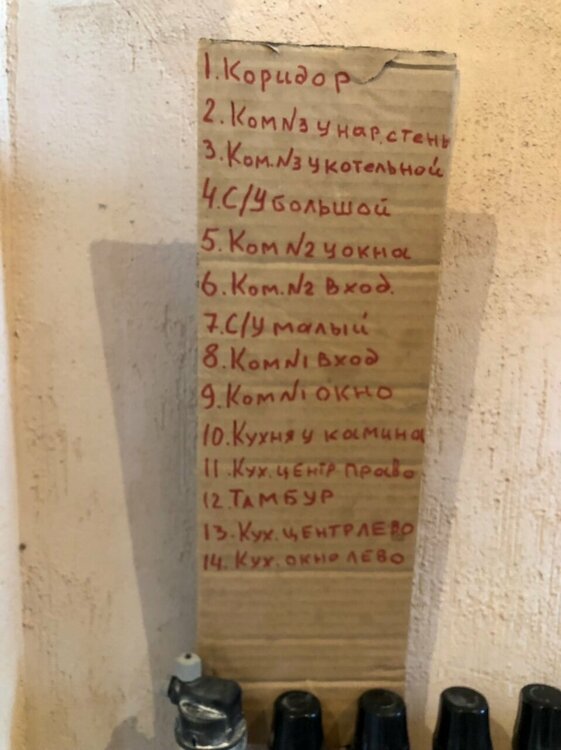 1. Коридор
2. Ком N3 у нар. стень
3. Ком. N3 у котельной
4. С/У большой
5. Ком N2 у окна
6. Ком. N2 вход.
7. С/У малый
8. Ком N1 вход
9. Ком N1 окно
10. Кухня у камина
11 Кух. центр право
12 ТАМБУР
13. Кух. ЦЕНТР ЛЕВО
14. Кух. окно лево